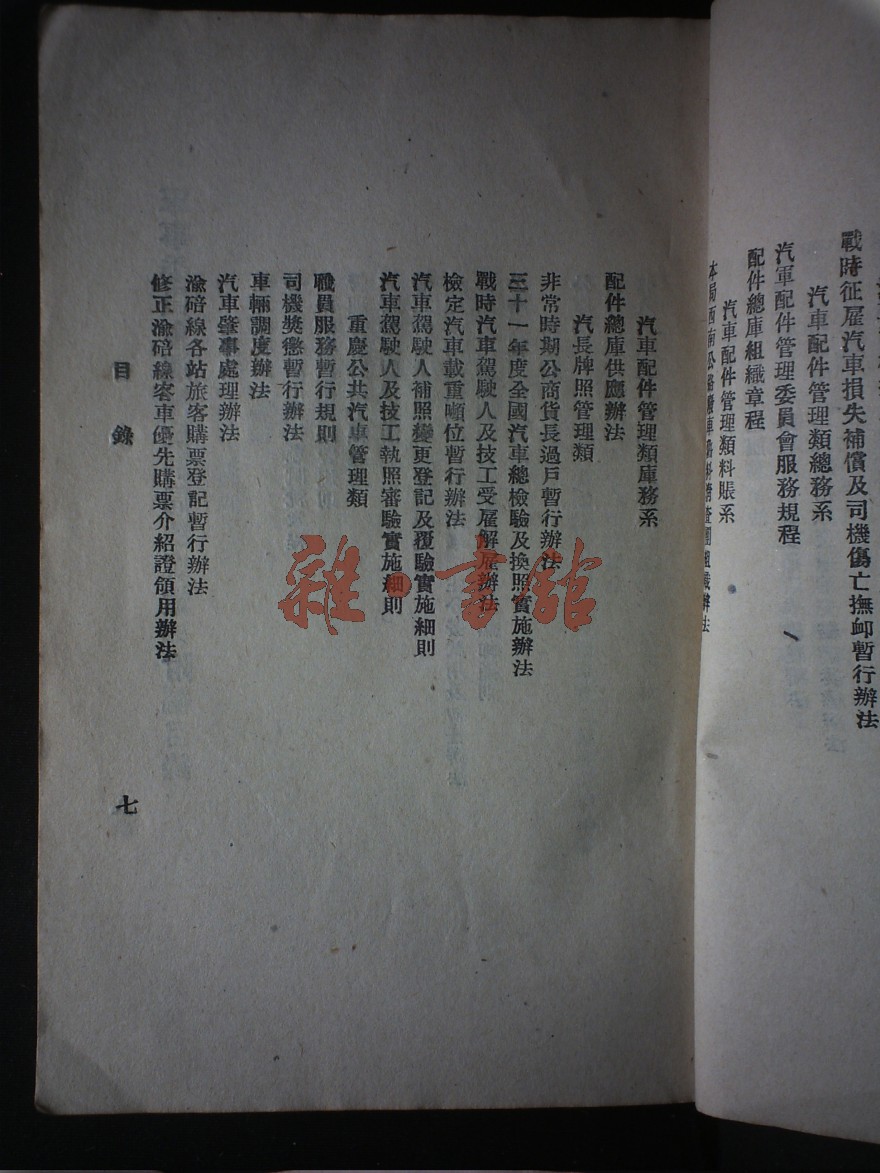 戰時征雇汽車損失補償及司機傷亡撫卹暫行辦法
汽車配件管理類總務系
汽軍配件管理委員會服務規程
配件總庫組織章程
汽車配件管理類料賬系
本局西南公路
汽車配件管理類庫務系
配件總庫供應辦法
汽長牌照管理類
非常時期公商貨長過戶暫行辦法
三十一年度全國汽車總檢驗及換照實施辦法
戰時汽車駕駛人及技工受雇解雇辦法
檢定汽車載重噸位暫行辦法
汽車駕駛人補照變更登記及覆驗實施細則
汽車駕駛人及技工執照審驗實施細則
重慶公共汽車管理類
職員服務暫行規則
司機獎懲暫行辦法
車輛調度辦法
汽車肇事處理辦法
渝碚線各站旅客購票登記暫行辦法
修正渝碚線客車優先購票介紹證領用辦法
目錄
七
雜書館